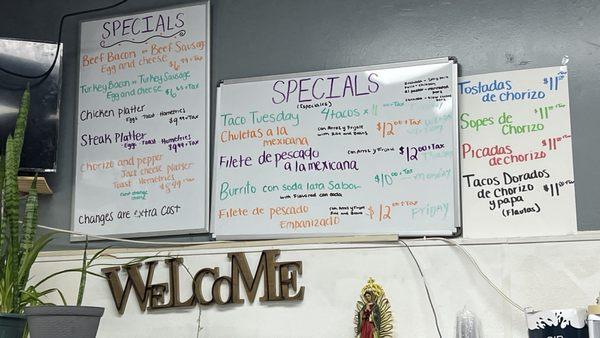 SPECIALS
Beef Bacon or Beef Sausage
Egg and cheese $6.99+Tax
Turkey Bacon or Turkey Sausage
Egg and cheese $6.55+Tax
Chicken platter
Eggs Toast Homefries
$9.99+Tax
Steak Platter
Eggs Toast Homefries
$9.99+Tax
Chorizo and pepper
Jack cheese platter
Toast Homefries
changes are extra cost
SPECIALS
(Especiales)
Taco Tuesday 4 tacos x 11.00+Tax
Chuletas a la
mexicana
con Arroz y Frijole
with Rice and Beans
$12.00+Tax
Filete de pescado
a la mexicana
con Arroz y Frijole
$12.00+Tax
Burrito con soda lata Sabor
with Flavored can soda
$10.00+Tax
Monday
Filete de pescado
Empanizado
con Arroz y Frijole
Rice and Beans
$12.00+Tax
Friday
Tostadas
de chorizo
$11.00+Tax
Sopes de
Chorizo
$11.00+Tax
Picadas
de chorizo
$11.00+Tax
Tacos Dorados
de Chorizo
y papa
(Flautas)
$11.00+Tax
WeLcoMe